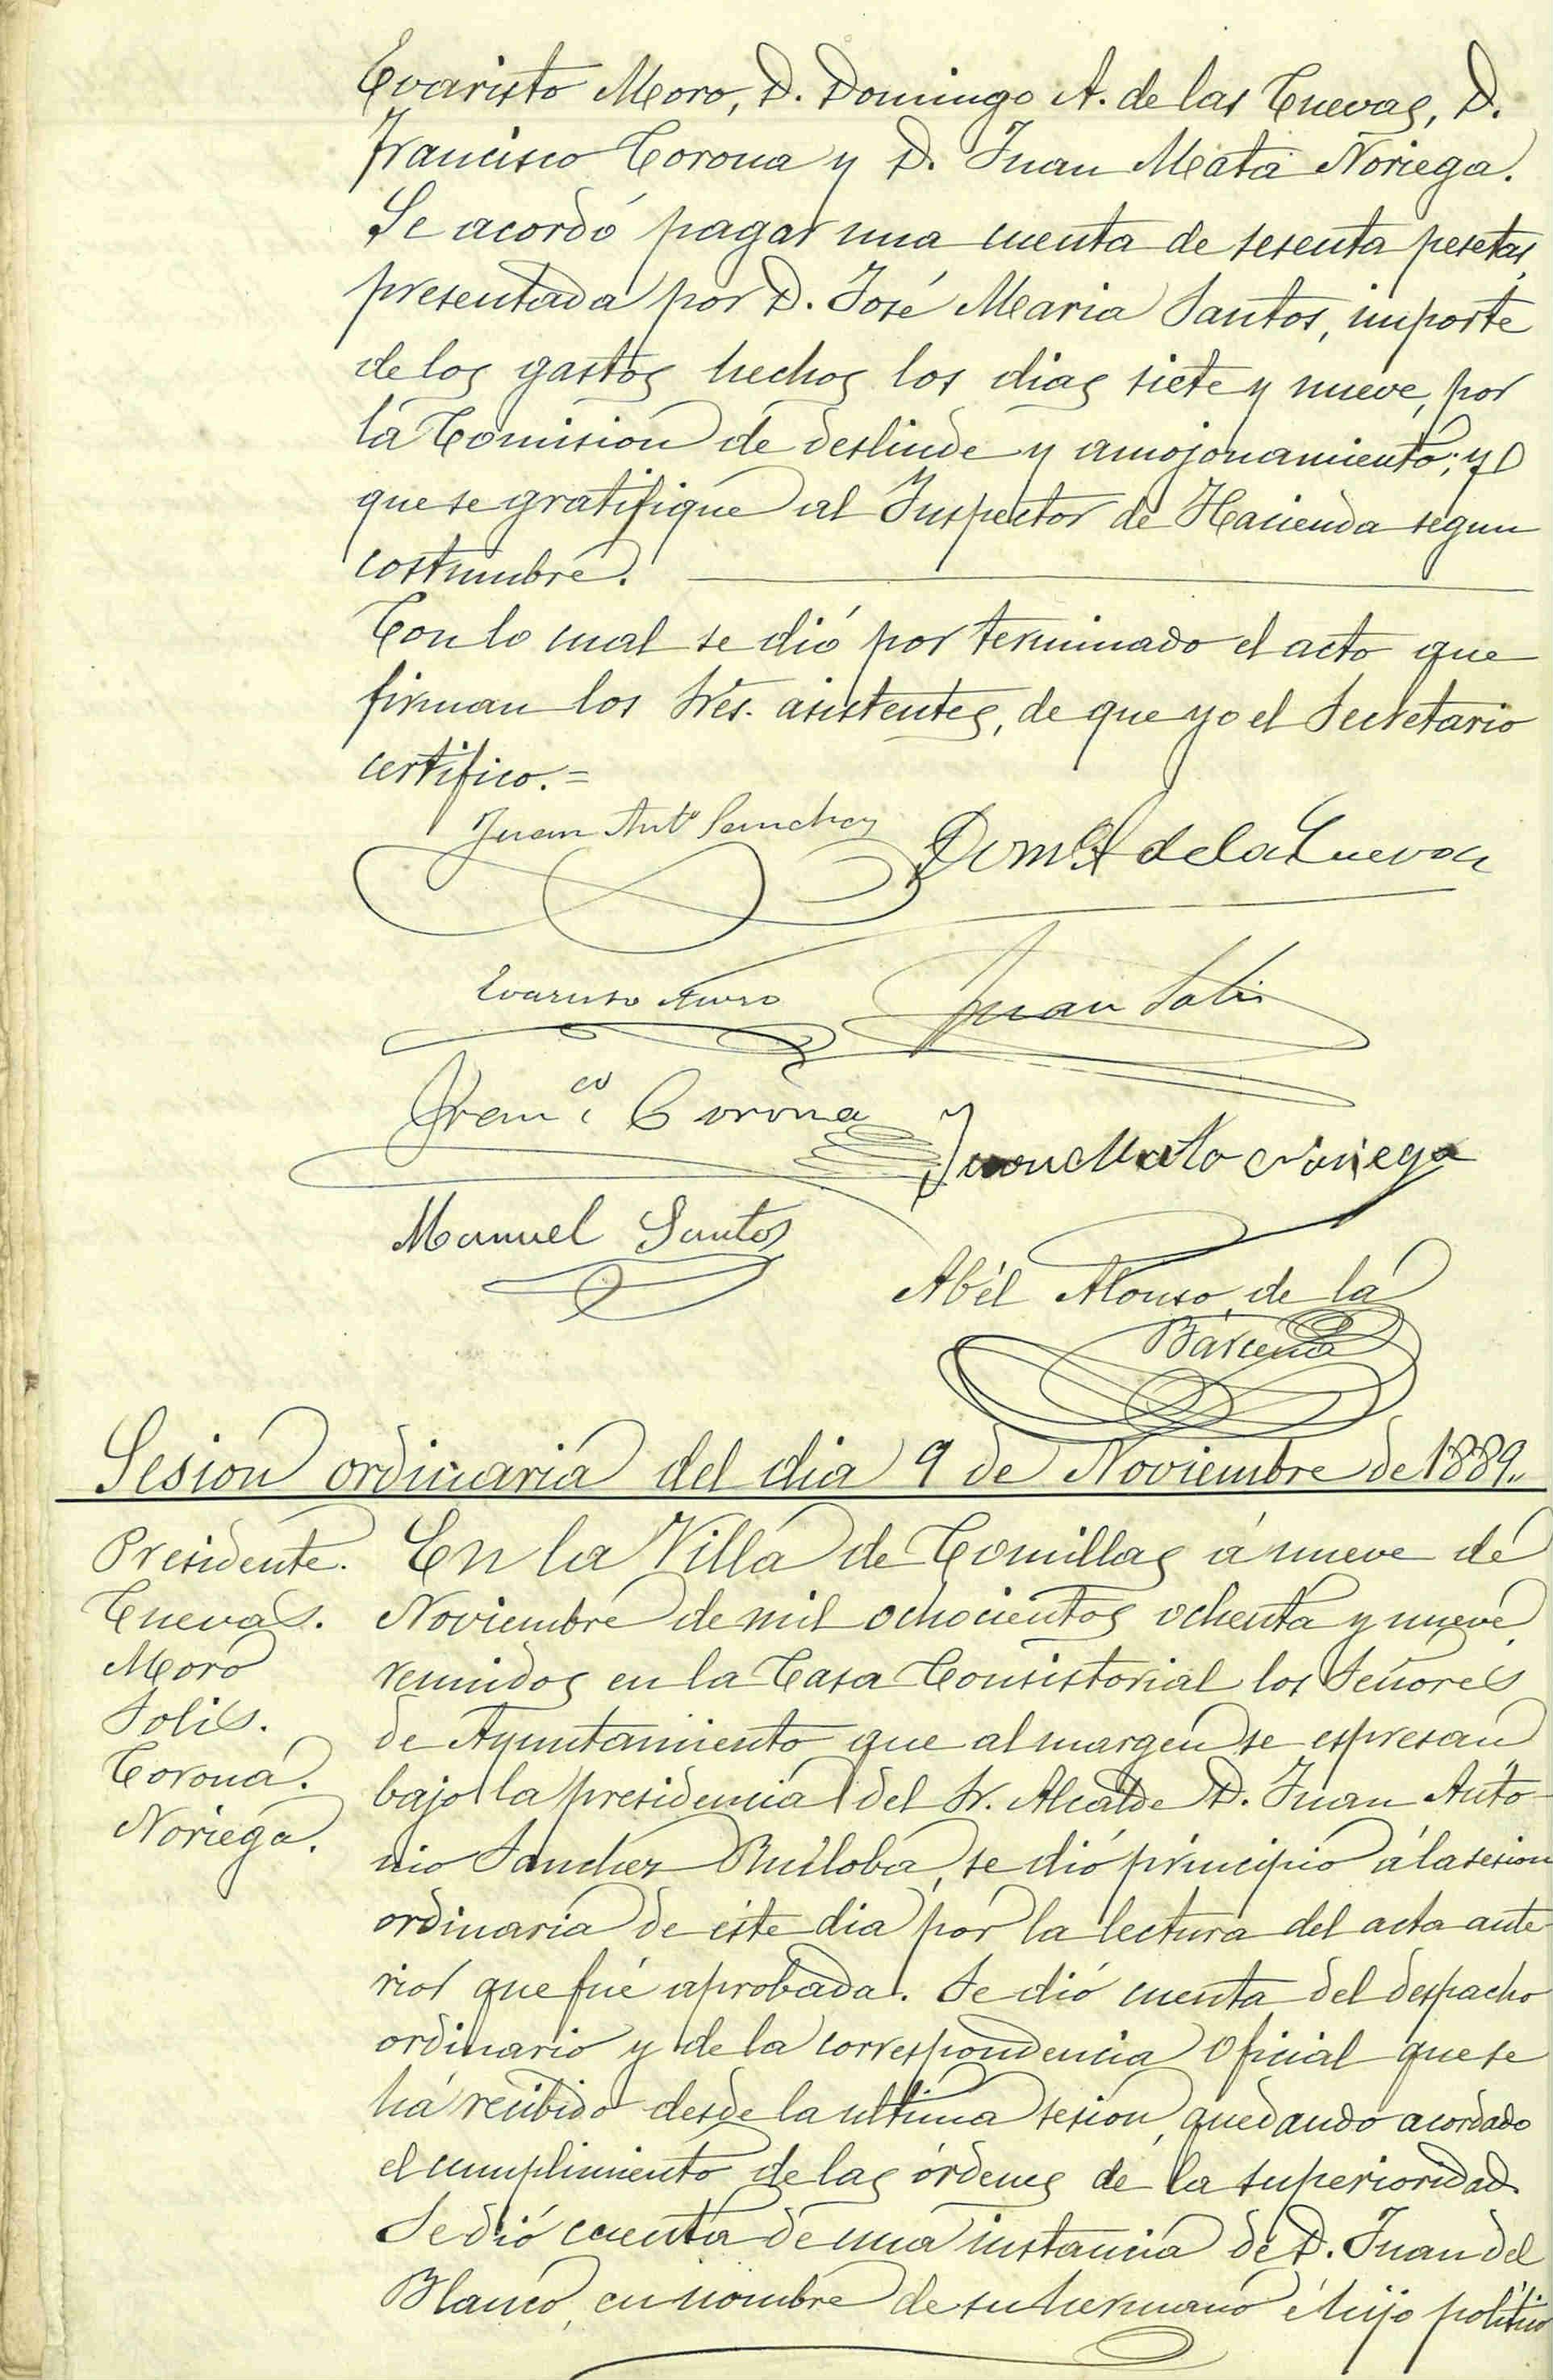 Evaristo Moro, D. Domingo A. de las Cuevas, D.
Francisco Corona y D. Juan Mata Noriega.
Se acordó pagar una cuenta de sesenta pesetas,
presentada por D. José Maria Santos, importe
de los gastos hechos los dias siete y nueve, por
la Comision de deslinde y amojonamiento; y
que se gratifique al Inspector de Hacienda segun
costumbre.
Con lo cual se dió por terminado el acto que
firman los Sres. asistentes, de que yo el Secretario
certifico.=
Juan Antº Sanchez
Domº A de la Cuevas
Evaristo Moro
Juan Solis
Francº Corona
Juan Mata Noriega
Manuel Santos
Abél Alonso de la
Bárcena
Sesion ordinaria del dia 9 de Noviembre de 1889.,
Presidente.
Cuevas.
Moro
Solis.
Corona.
Noriega.
En la Villa de Comillas á nueve de
Noviembre de mil ochocientos ochenta y nueve,
reunidos en la Casa Consistorial los Señores
de Ayuntamiento que al margen se espresan
bajo la presidencia del Sr. Alcalde D. Juan Anto-
nio Sanchez Ruiloba, se dió principio á la sesion
ordinaria de éste dia por la lectura del acta ante-
rior que fué aprobada. Se dió cuenta del despacho
ordinario y de la correspondencia oficial que se
há recibido desde la ultima sesion, quedando acordado
el cumplimiento de las órdenes de la superioridad.
Se dió cuenta de una instancia de D. Juan del
Blanco, en nombre de su hermano é hijo politico